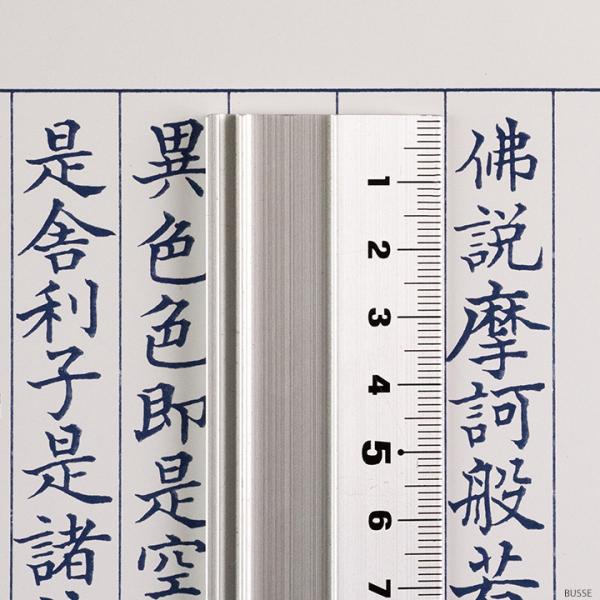 佛説摩訶般若
異色色即是空
是舍利子是諸
1
2
3
4
5
6
7
BUSSE